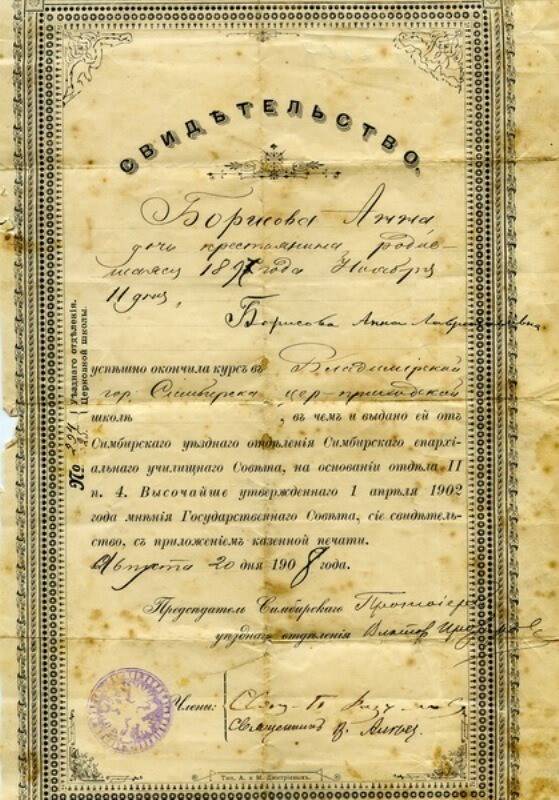 СВИДѢТЕЛЬСТВО.
Борисова Анна
дочь крестьянина, родив-
шаяся 18 года Ноября
11 дня,
Борисова Анна
успѣшно окончила курсъ въ Владимірской
гор. Симбирска цер-приходской
школѣ , въ чемъ и выдано ей отъ
Симбирскаго уѣзднаго отдѣленія Симбирскаго епархі-
альнаго училищнаго Совѣта, на основаніи отдѣла II
п. 4. Высочайше утвержденнаго 1 апрѣля 1902
года мнѣнія Государственнаго Совѣта, сіе свидѣтель-
ство, съ приложеніемъ казенной печати.
Августа 20 дня 1908 года.
Предсѣдатель Симбирскаго Протоіерей
уѣзднаго отдѣленія
Члены:
Священникъ
№
Уѣзднаго отдѣленія.
Церковной школы.
Тип. А. и М. Дмитріевыхъ.